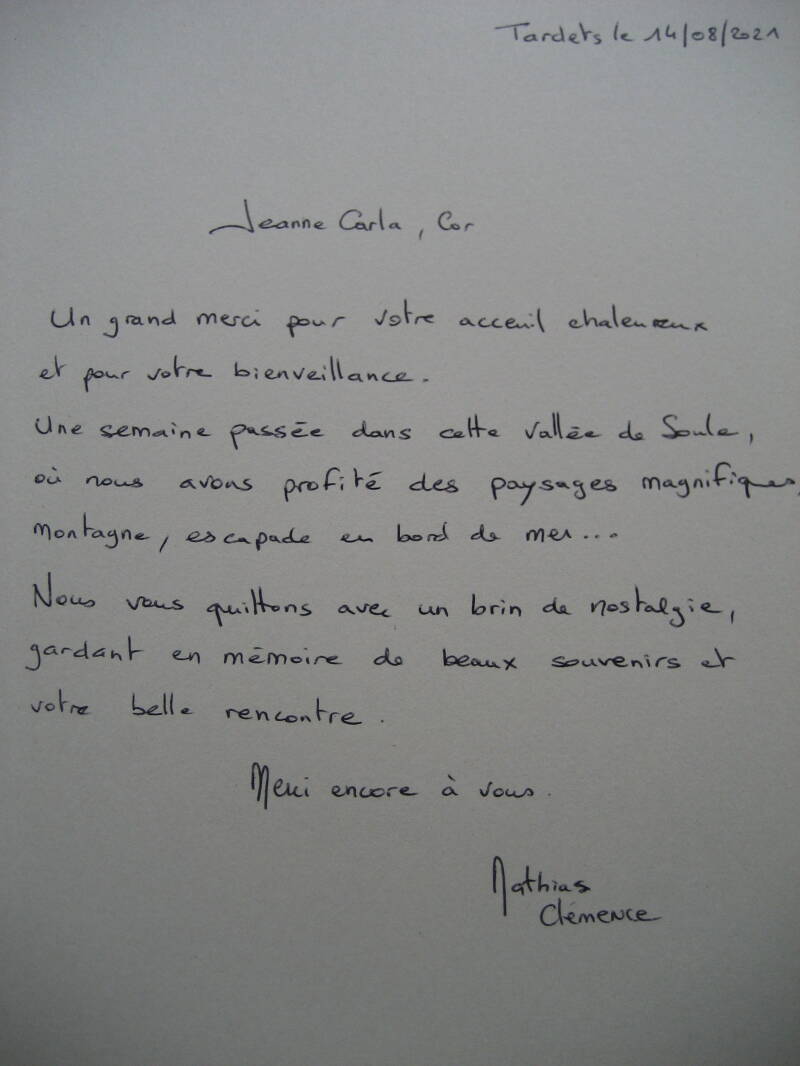 Tardets le 14/08/2021
Jeanne Carla, Cor
Un grand merci pour votre acceuil chaleureux
et pour votre bienveillance.
Une semaine passée dans cette vallée de Soule,
où nous avons profité des paysages magnifiques,
montagne, escapade en bord de mer...
Nous vous quittons avec un brin de nostalgie,
gardant en mémoire de beaux souvenirs et
votre belle rencontre.
Merci encore à vous.
Mathias
Clémence